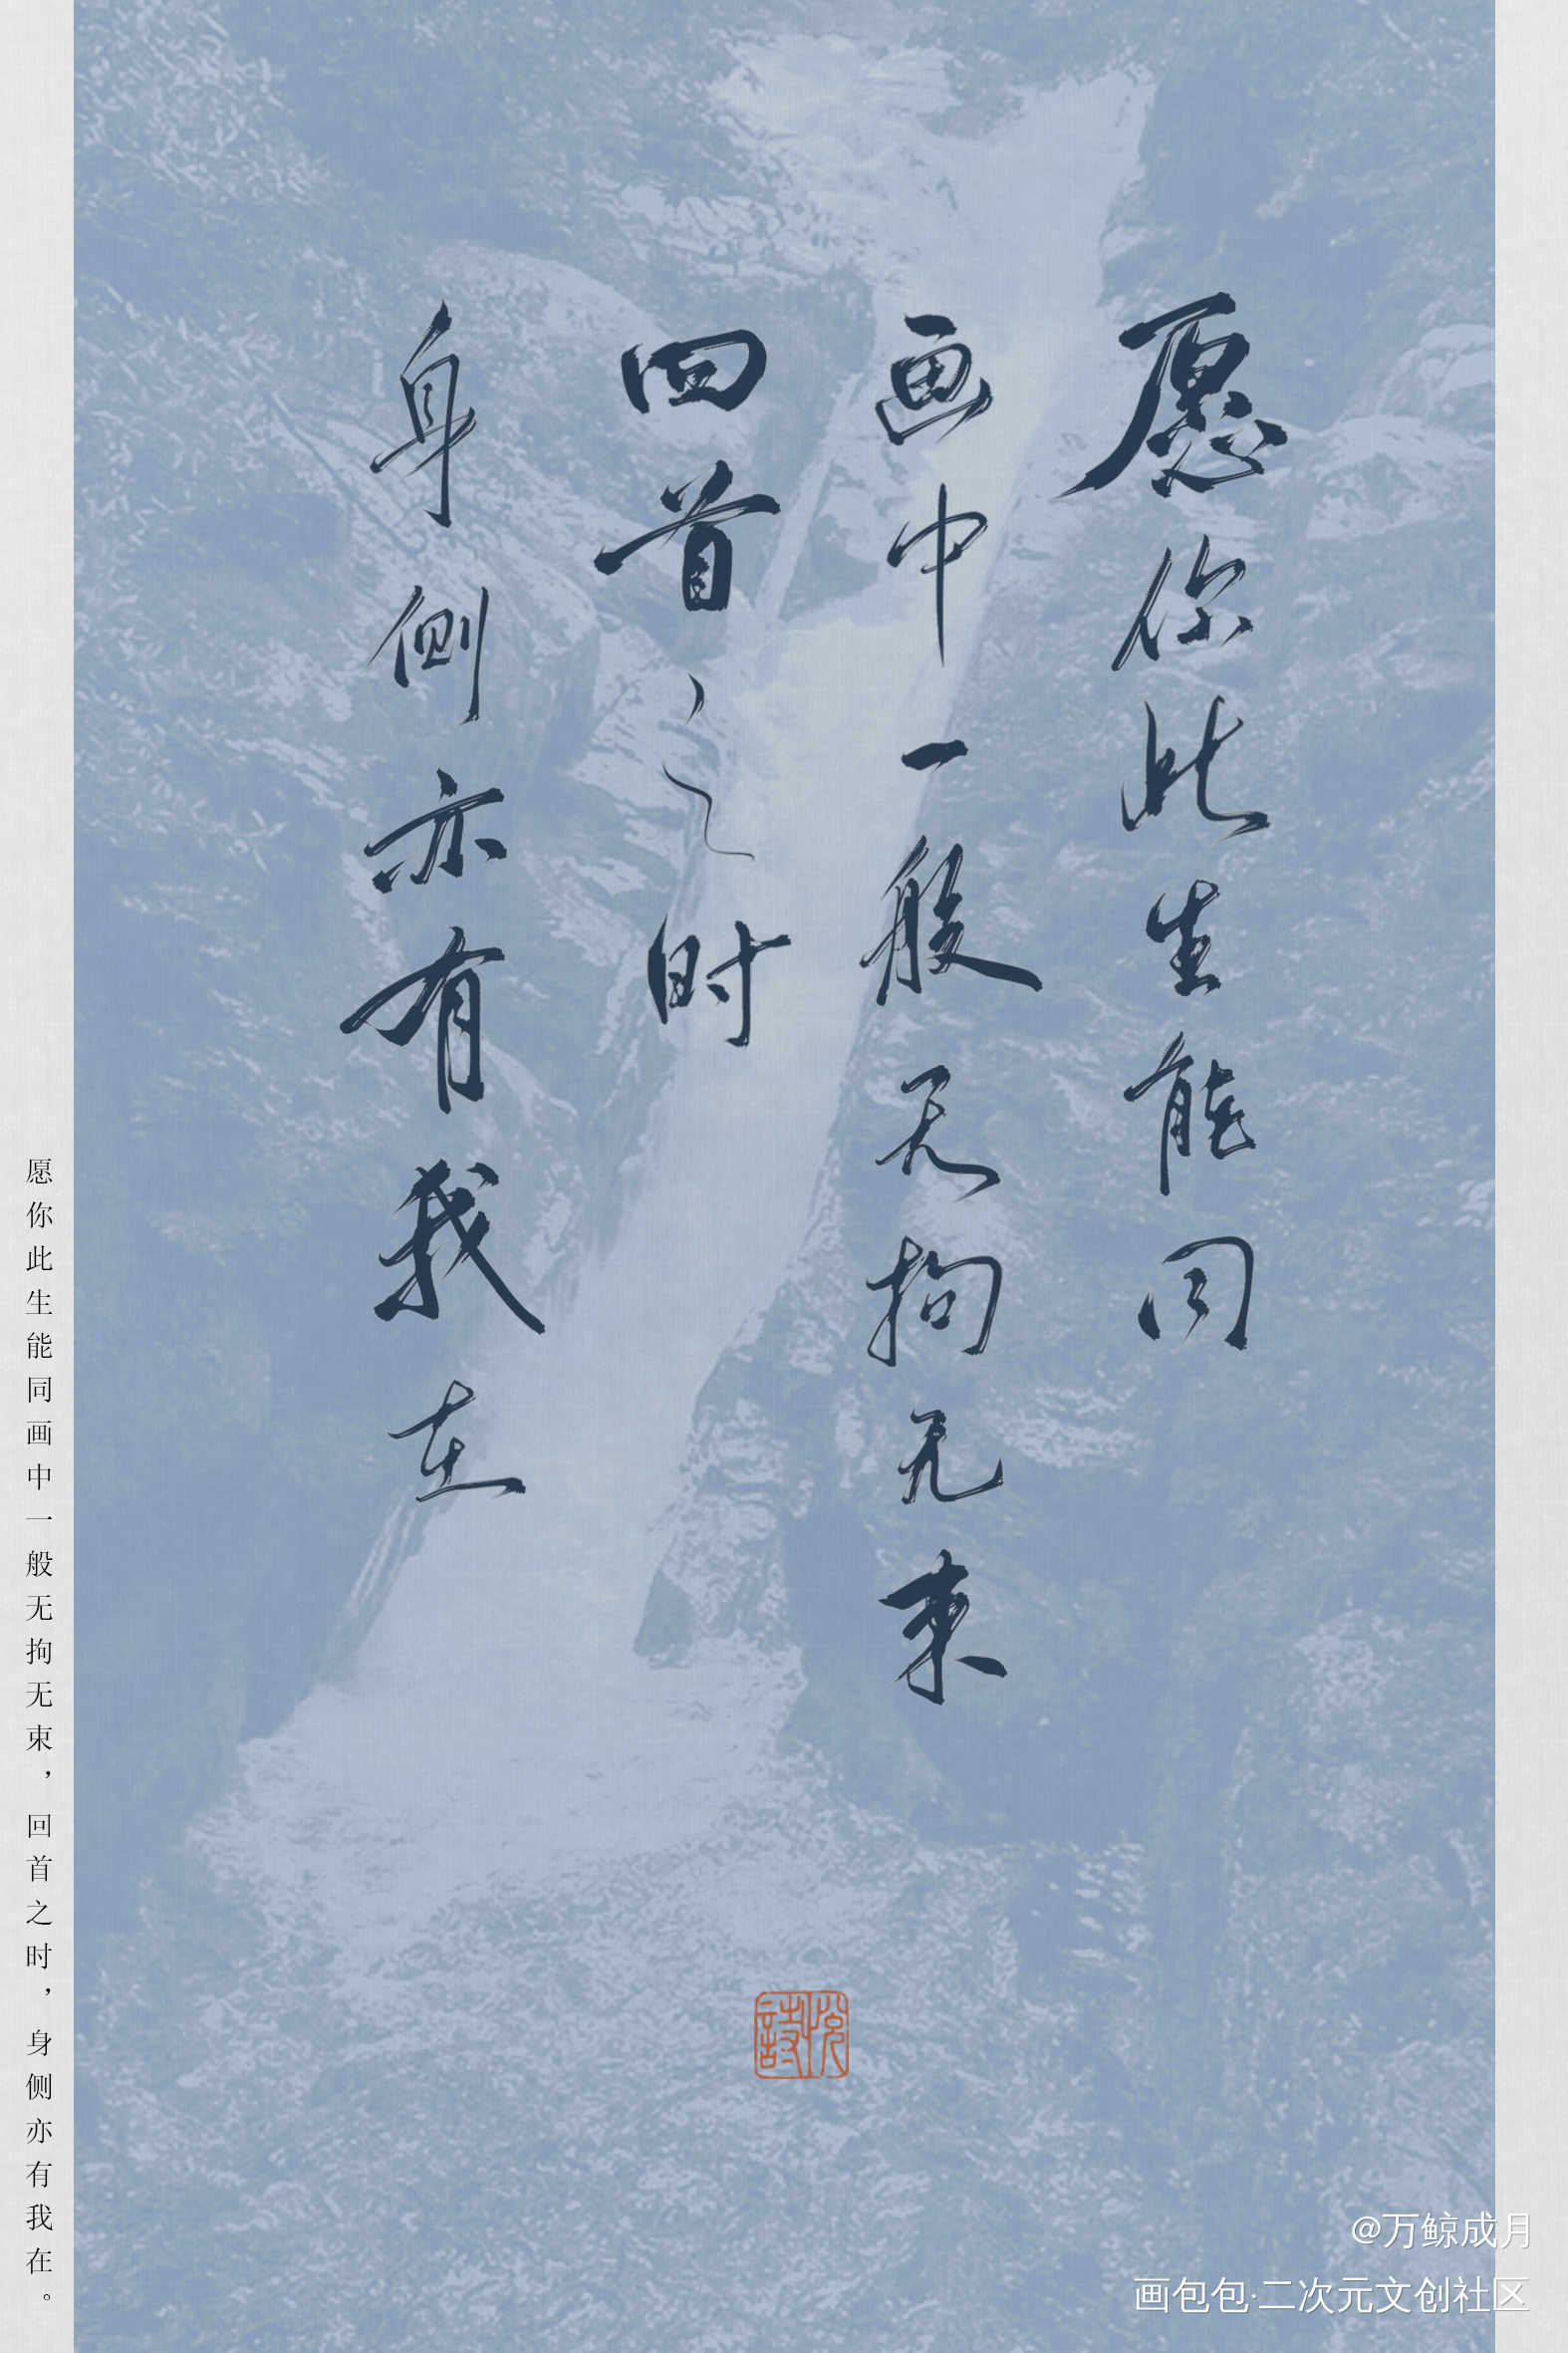 愿你此生能同
画中一般无拘无束
回首之时
身侧亦有我在
愿你此生能同画中一般无拘无束，回首之时，身侧亦有我在。
@万鲸成月
画包包·二次元文创社区